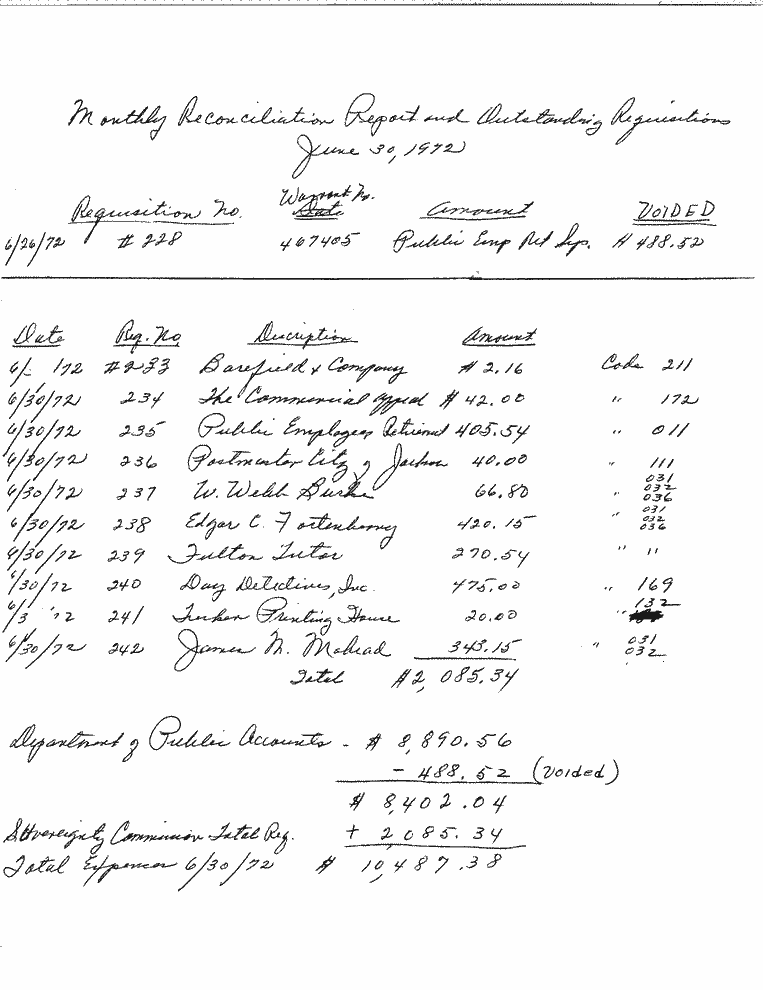 Monthly Reconciliation Report and Outstanding Requisitions
June 30, 1972
Requisition No. Warrant No. Date Amount VOIDED
6/26/72 # 228 467405 Public Emp Ret Sys. $ 488.52
Date Req. No Description Amount
6/ /72 #233 Barefield & Company $ 2.16 Code 211
6/30/72 234 The Commercial Appeal $ 42.00 " 172
6/30/72 235 Public Employees Retirement 405.54 " 011
6/30/72 236 Postmaster City of Jackson 40.00 " 111
6/30/72 237 W. Webb Burke 66.80 " 031 032 036
6/30/72 238 Edgar C. Fortenberry 420.15 " 031 032 036
6/30/72 239 Fulton Tutor 270.54 " "
6/30/72 240 Day Detectives, Inc. 475.00 " 169
6/3 '72 241 Tucker Printing House 20.00 " 132
6/30/72 242 James M. Mohead 343.15 " 031 032
Total $2,085.34
Department of Public Accounts - $ 8,890.56
- 488.52 (Voided)
$ 8,402.04
Sovereignty Commission Total Req. + 2,085.34
Total Expenses 6/30/72 $ 10,487.38